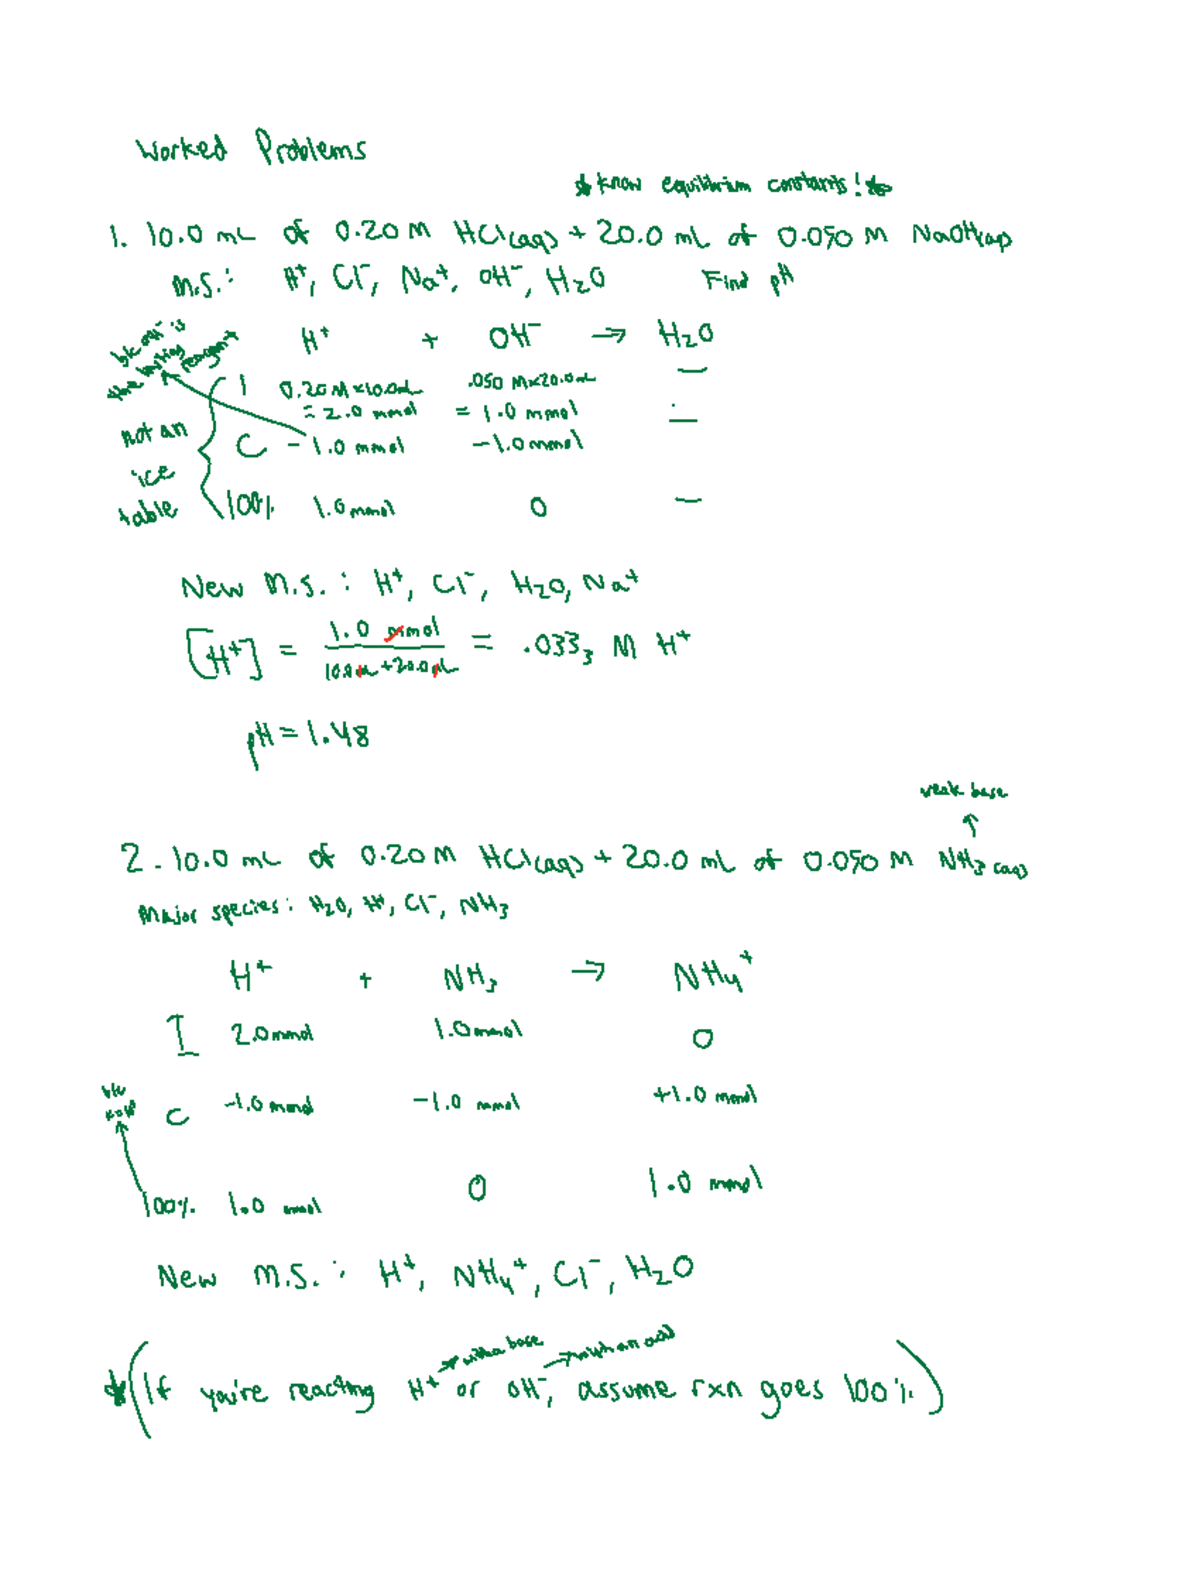 Worked Problems
*know equilibrium constants!*
1. 10.0 mL of 0.20 M HCl(aq) + 20.0 mL of 0.050 M NaOH(aq)
M.S.: H⁺, Cl⁻, Na⁺, OH⁻, H₂O Find pH
b/c OH⁻ is
the limiting reagent
H⁺ + OH⁻ → H₂O
I 0.20 M x 10.0mL .050 M x 20.0mL —
= 2.0 mmol = 1.0 mmol —
C -1.0 mmol -1.0 mmol
100% 1.0 mmol 0 —
not an
ice
table
New M.S.: H⁺, Cl⁻, H₂O, Na⁺
[H⁺] = 1.0 mmol / 10.0mL + 20.0mL = .033₃ M H⁺
pH = 1.48
weak base
2. 10.0 mL of 0.20 M HCl(aq) + 20.0 mL of 0.050 M NH₃(aq)
Major species: H₂O, H⁺, Cl⁻, NH₃
H⁺ + NH₃ → NH₄⁺
I 2.0 mmol 1.0 mmol 0
b/c
C -1.0 mmol -1.0 mmol +1.0 mmol
100% 1.0 mmol 0 1.0 mmol
New M.S.: H⁺, NH₄⁺, Cl⁻, H₂O
→ with a base → with an acid
*(If you're reacting H⁺ or OH⁻, assume rxn goes 100%)